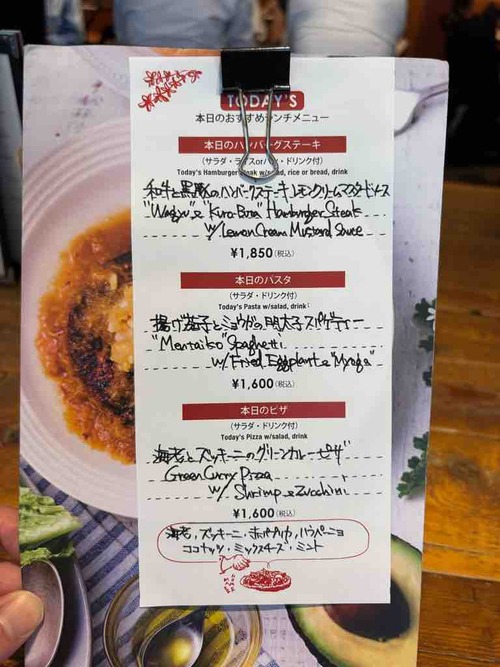 TODAY'S
本日のおすすめランチメニュー
本日のハンバーグステーキ
(サラダ・ライスorパン・ドリンク付)
Today's Hamburger Steak w/salad, rice or bread, drink
和牛と黒豚のハンバーグステーキ レモンクリームマスタードソース
"Wagyu" & "Kuro-Buta" Hamburger Steak
w/ Lemon Cream Mustard Sauce
¥1,850(税込)
本日のパスタ
(サラダ・ドリンク付)
Today's Pasta w/salad, drink
揚げ茄子とミョウガの明太子スパゲティー
"Mentaiko" Spaghetti
w/ Fried Eggplant & "Myoga"
¥1,600(税込)
本日のピザ
(サラダ・ドリンク付)
Today's Pizza w/salad, drink
海老とズッキーニのグリーンカレーピザ
Green Curry Pizza
w/ Shrimp & Zucchini
¥1,600(税込)
海老、ズッキーニ・赤パプリカ、ハラペーニョ
ココナッツ・ミックスチーズ・ミント